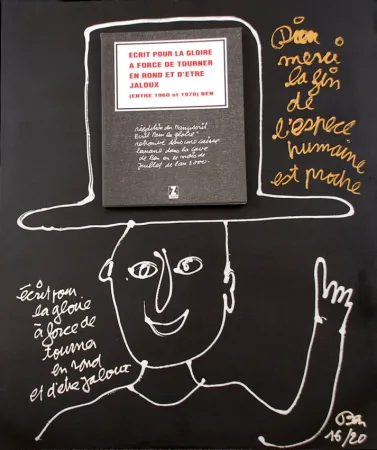 ECRIT POUR LA GLOIRE
A FORCE DE TOURNER
EN ROND ET D'ETRE
JALOUX
(ENTRE 1960 et 1970) BEN
réédition du manuscrit
Ecrit Pour la gloire
retrouvé dans une caisse
dans la cave
de Ben en ce mois de
juillet de l'an 2000
Z
Dieu
merci
la fin
de
l'espece
humaine
est proche
écrit pour
la gloire
à force de
tourner
en rond
et d'être jaloux
Ben
16/20